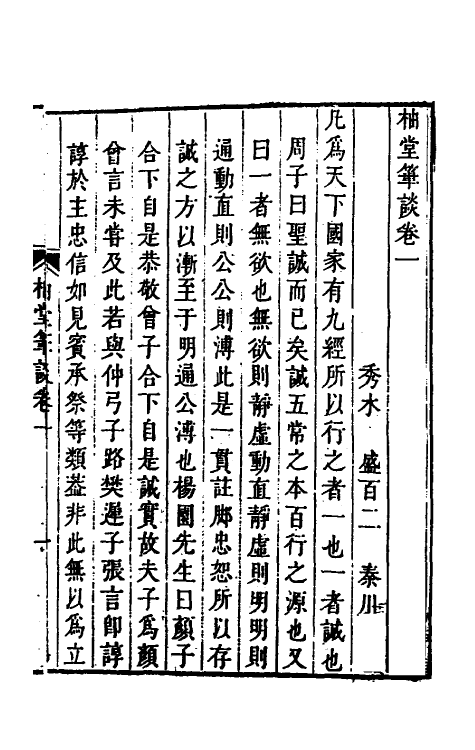 柚堂筆談卷一
秀水 盛百二 秦川
凡爲天下國家有九經所以行之者一也一者誠也
周子曰聖誠而已矣誠五常之本百行之源也又
曰一者無欲也無欲則靜虛動直靜虛則明明則
通動直則公公則溥此是一貫註脚忠恕所以存
誠之方以漸至于明通公溥也楊園先生曰顏子
合下自是恭敬曾子合下自是誠實故夫子爲顏
曾言未嘗及此若與仲弓子路樊遲子張言卽諄
諄於主忠信如見賓承祭等類葢非此無以爲立
柚堂筆談卷一 一